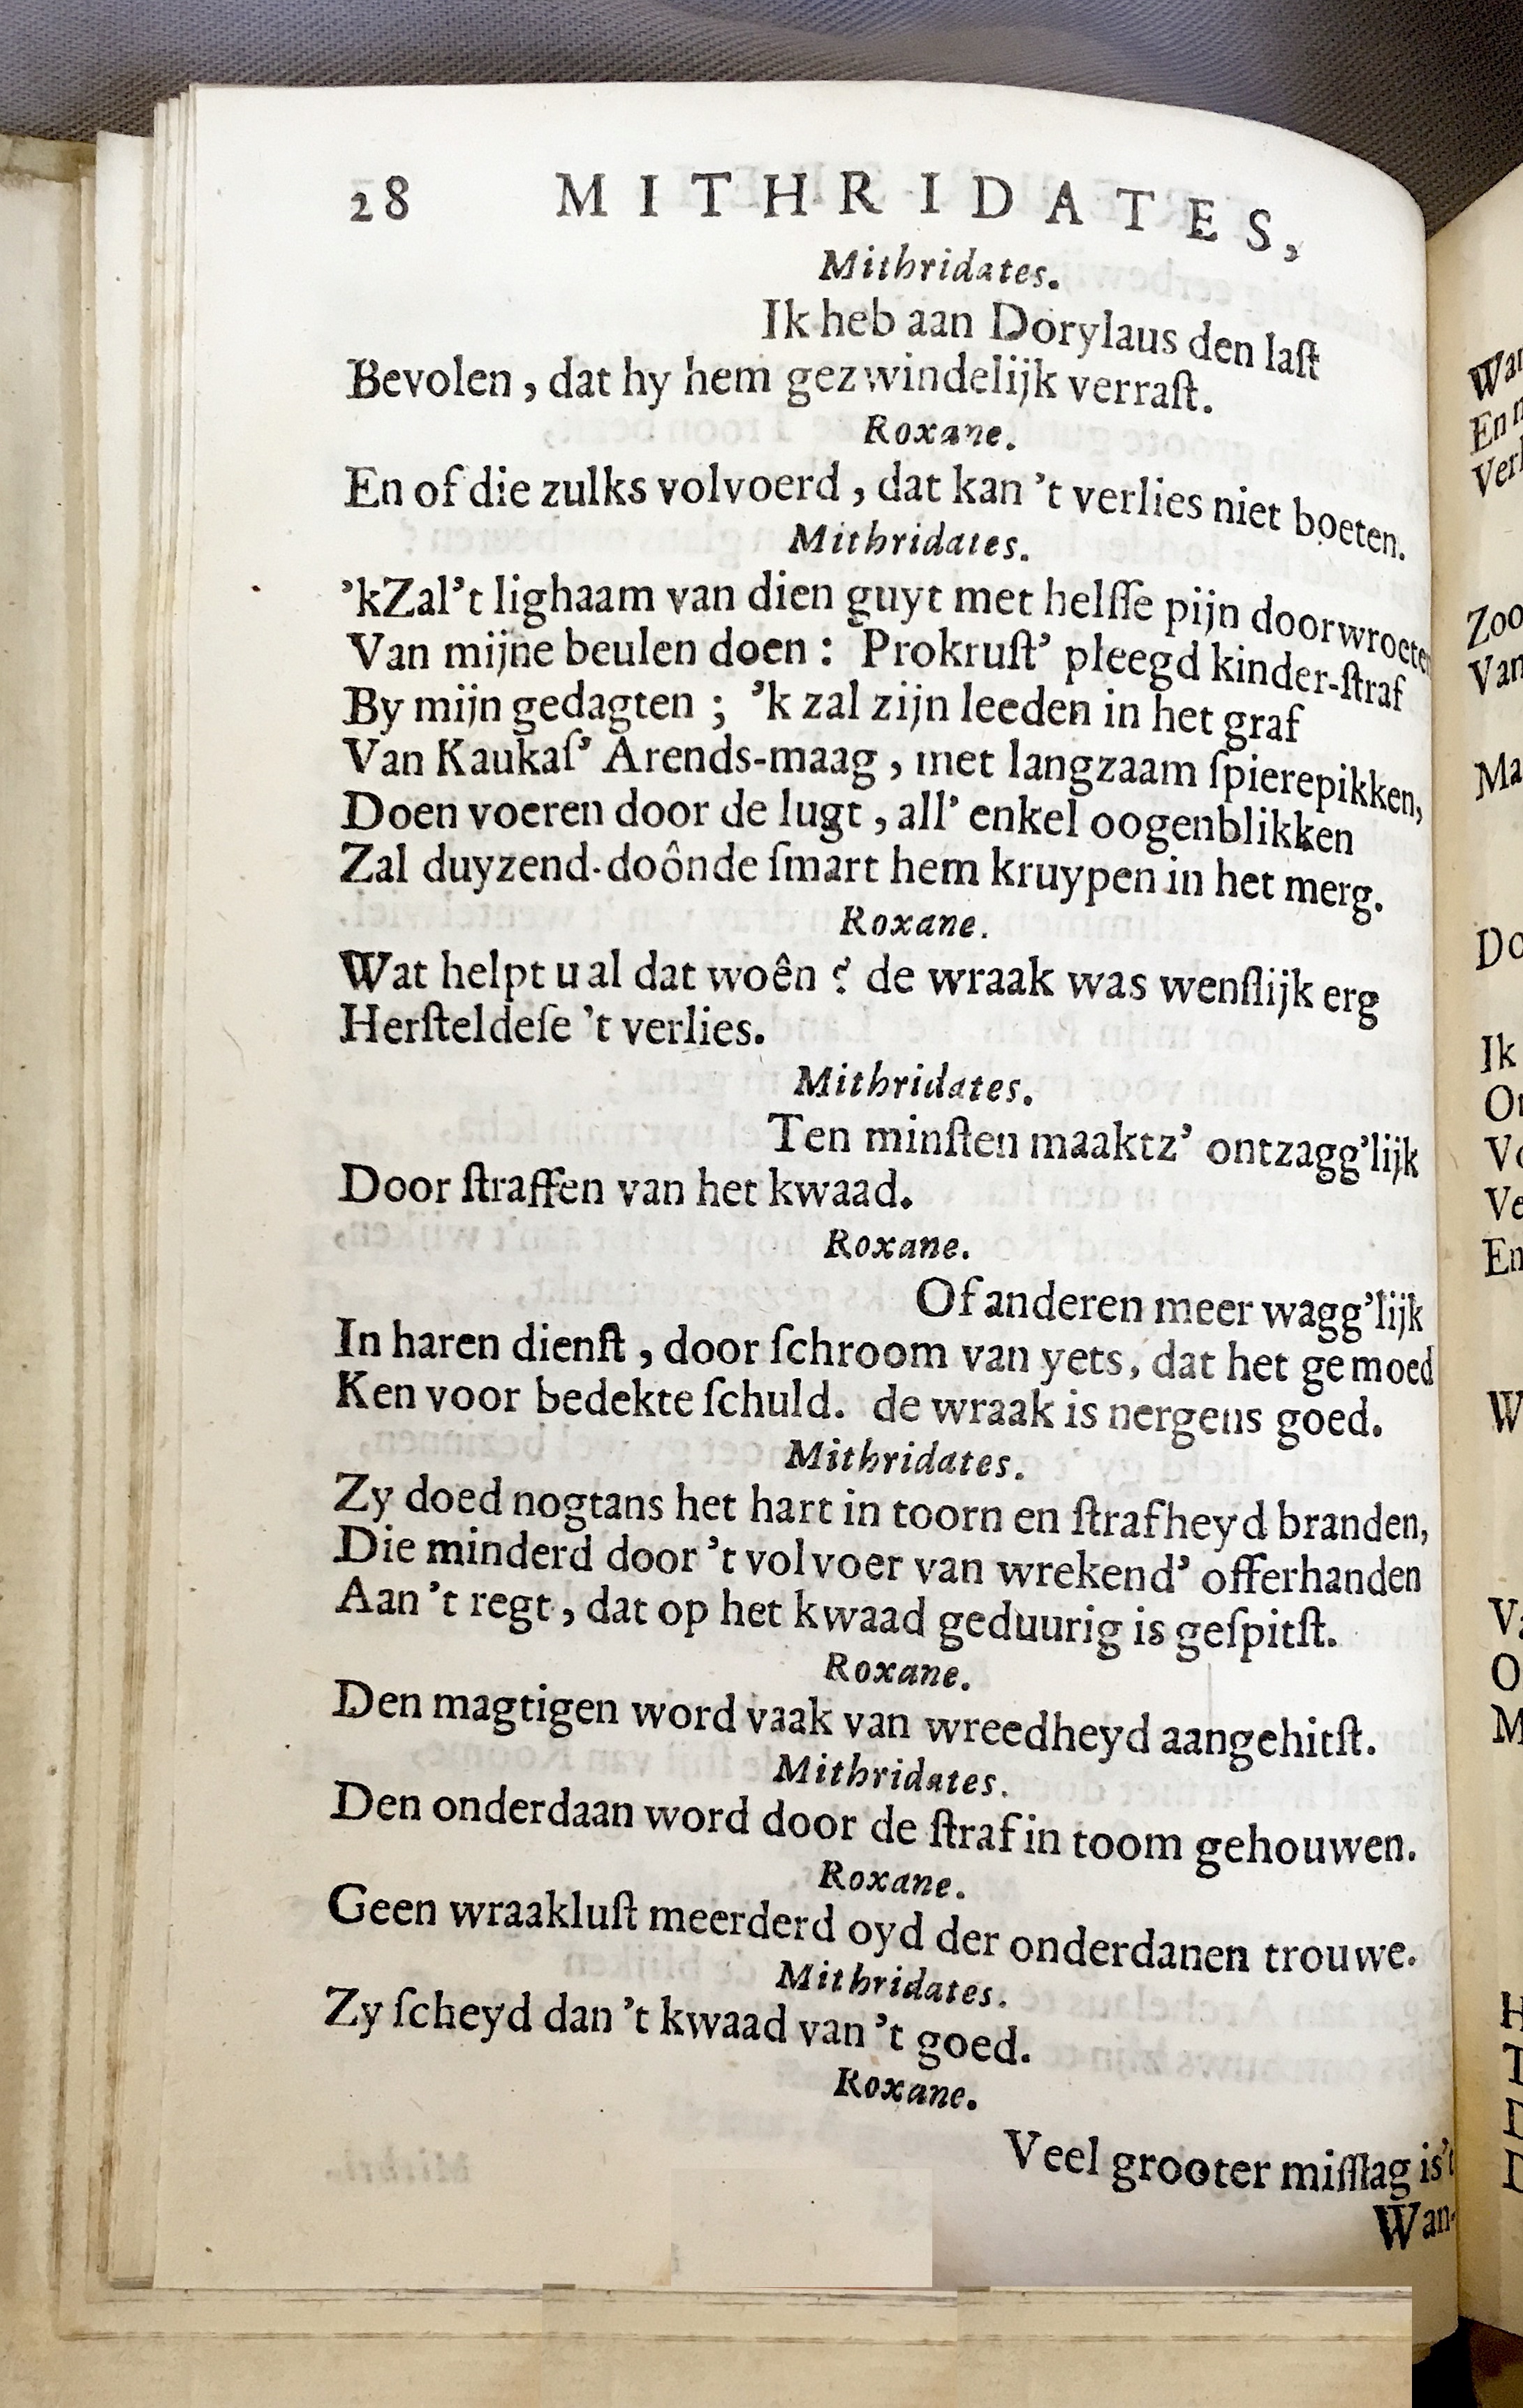 28 MITHRIDATES,
Mithridates.
Ik heb aan Dorylaus den laſt
Bevolen, dat hy hem gezwindelijk verraſt.
Roxane.
En of die zulks volvoerd, dat kan 't verlies niet boeten.
Mithridates.
'kZal't lighaam van dien guyt met helſſe pijn doorwroeten
Van mijne beulen doen: Prokruſt' pleegd kinder-ſtraf
By mijn gedagten; 'k zal zijn leeden in het graf
Van Kaukaſ' Arends-maag, met langzaam ſpierepikken,
Doen voeren door de lugt, all' enkel oogenblikken
Zal duyzend-doônde ſmart hem kruypen in het merg.
Roxane.
Wat helpt u al dat woên? de wraak was wenſlijk erg
Herſteldeſe 't verlies.
Mithridates.
Ten minſten maaktz' ontzagg'lijk
Door ſtraffen van het kwaad.
Roxane.
Of anderen meer wagg'lijk
In haren dienſt, door ſchroom van yets, dat het gemoed
Ken voor bedekte ſchuld. de wraak is nergens goed.
Mithridates.
Zy doed nogtans het hart in toorn en ſtrafheyd branden,
Die minderd door 't volvoer van wrekend' offerhanden
Aan 't regt, dat op het kwaad geduurig is geſpitſt.
Roxane.
Den magtigen word vaak van wreedheyd aangehitſt.
Mithridates.
Den onderdaan word door de ſtraf in toom gehouwen.
Roxane.
Geen wraakluſt meerderd oyd der onderdanen trouwe.
Mithridates.
Zy ſcheyd dan 't kwaad van 't goed.
Roxane.
Veel grooter miſſlag is't
Wan-